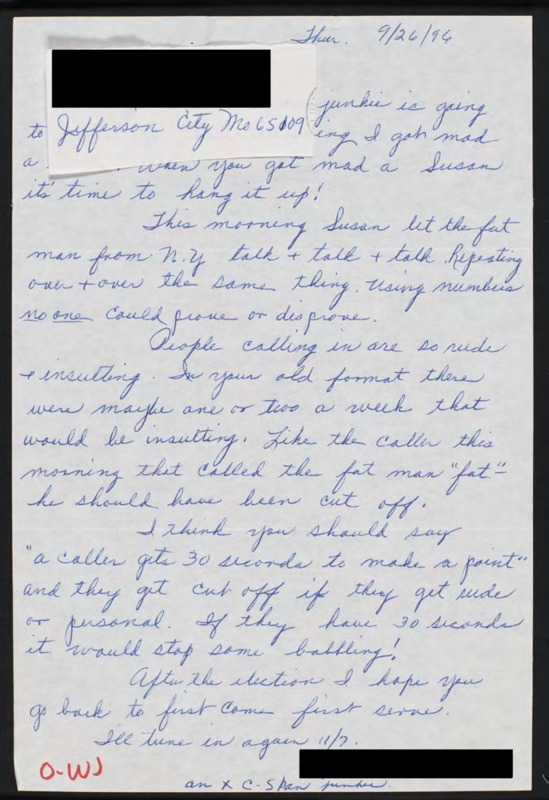 Thur. 9/26/96
junkie is going
to Jefferson City Mo 65109 ing I got mad
a . When you get mad a Susan
its time to hang it up!
This morning Susan let the fat
man from N.Y talk + talk + talk. Repeating
over + over the same thing. Using numbers
no one could prove or disprove.
People calling in are so rude
+ insulting. In your old format there
were maybe one or two a week that
would be insulting. Like the caller this
morning that called the fat man "fat" -
he should have been cut off.
I think you should say
"a caller gets 30 seconds to make a point"
and they get cut off if they get rude
or personal. If they have 30 seconds
it would stop some babbling!
After the election I hope you
go back to first come first serve.
I'll tune in again 11/7.
O-WJ
an X C-Span junkie.